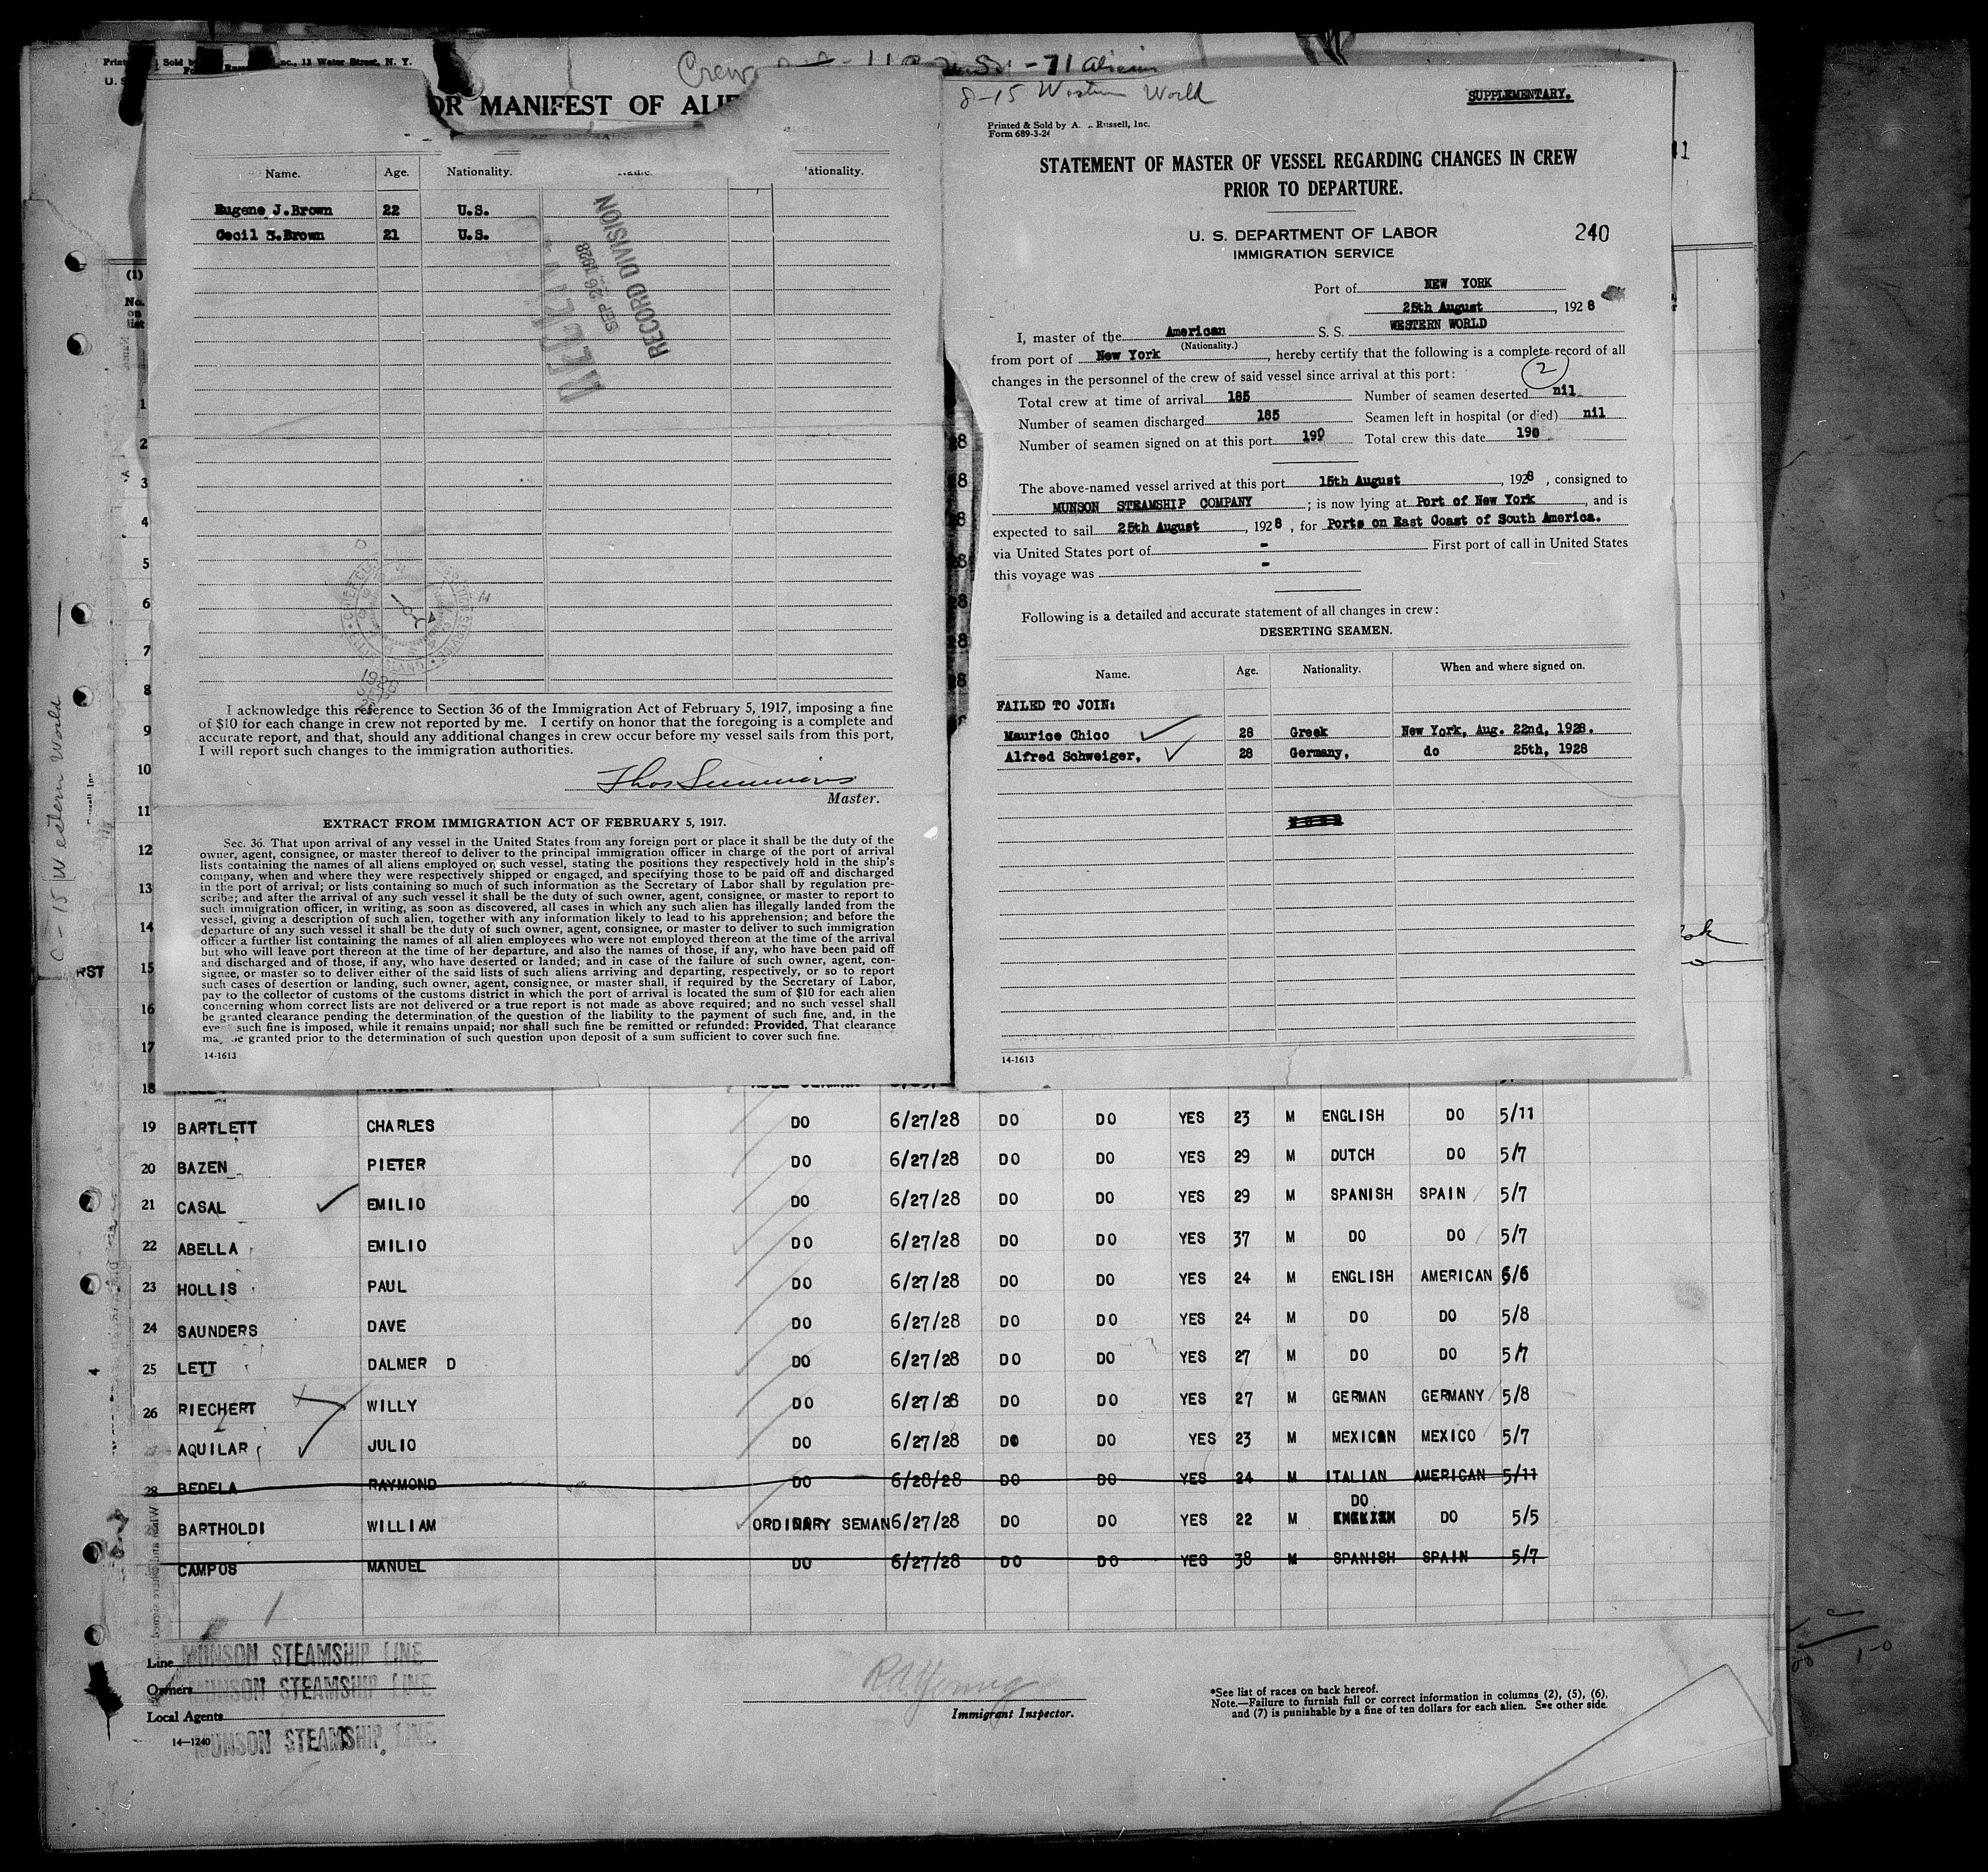 Crew
71 aliens
OR MANIFEST OF
Name. Age. Nationality.
Eugene J.Brown 22 U.S.
Cecil S.Brown 21 U.S.
RECORD DIVISION
SEP 26 1928
I acknowledge this reference to Section 36 of the Immigration Act of February 5, 1917, imposing a fine
of $10 for each change in crew not reported by me. I certify on honor that the foregoing is a complete and
accurate report, and that, should any additional changes in crew occur before my vessel sails from this port,
I will report such changes to the immigration authorities.
Thos Simmons
Master.
EXTRACT FROM IMMIGRATION ACT OF FEBRUARY 5, 1917.
Sec. 36. That upon arrival of any vessel in the United States from any foreign port or place it shall be the duty of the
owner, agent, consignee, or master thereof to deliver to the principal immigration officer in charge of the port of arrival
lists containing the names of all aliens employed on such vessel, stating the positions they respectively hold in the ship's
company, when and where they were respectively shipped or engaged, and specifying those to be paid off and discharged
in the port of arrival; or lists containing so much of such information as the Secretary of Labor shall by regulation pre-
scribe; and after the arrival of any such vessel it shall be the duty of such owner, agent, consignee, or master to report to
such immigration officer, in writing, as soon as discovered, all cases in which any such alien has illegally landed from the
vessel, giving a description of such alien, together with any information likely to lead to his apprehension; and before the
departure of any such vessel it shall be the duty of such owner, agent, consignee, or master to deliver to such immigration
officer a further list containing the names of all alien employees who were not employed thereon at the time of the arrival
but who will leave port thereon at the time of her departure, and also the names of those, if any, who have been paid off
and discharged and of those, if any, who have deserted or landed; and in case of the failure of such owner, agent, con-
signee, or master so to deliver either of the said lists of such aliens arriving and departing, respectively, or so to report
such cases of desertion or landing, such owner, agent, consignee, or master shall, if required by the Secretary of Labor,
pay to the collector of customs of the customs district in which the port of arrival is located the sum of $10 for each alien
concerning whom correct lists are not delivered or a true report is not made as above required; and no such vessel shall
be granted clearance pending the determination of the question of the liability to the payment of such fine, and, in the
such fine is imposed, while it remains unpaid; nor shall such fine be remitted or refunded: Provided, That clearance
may be granted prior to the determination of such question upon deposit of a sum sufficient to cover such fine.
14-1613
8-15 Western World
SUPPLEMENTARY.
Printed & Sold by A. Russell, Inc.
Form 689-3-24
STATEMENT OF MASTER OF VESSEL REGARDING CHANGES IN CREW
PRIOR TO DEPARTURE.
U. S. DEPARTMENT OF LABOR
IMMIGRATION SERVICE
240
Port of NEW YORK
25th August, 1928
I, master of the American S. S. WESTERN WORLD
(Nationality.)
from port of New York, hereby certify that the following is a complete record of all
changes in the personnel of the crew of said vessel since arrival at this port:
2
Total crew at time of arrival 185 Number of seamen deserted nil
Number of seamen discharged 185 Seamen left in hospital (or died) nil
Number of seamen signed on at this port 190 Total crew this date 190
The above-named vessel arrived at this port 15th August, 1928, consigned to
MUNSON STEAMSHIP COMPANY; is now lying at Port of New York, and is
expected to sail 25th August, 1928, for Ports on East Coast of South America.
via United States port of - First port of call in United States
this voyage was -
Following is a detailed and accurate statement of all changes in crew:
DESERTING SEAMEN.
Name. Age. Nationality. When and where signed on.
FAILED TO JOIN:
Maurice Chico 28 Greek New York, Aug. 22nd, 1928.
Alfred Schweiger, 28 Germany, do 25th, 1928
14-1613
19 BARTLETT CHARLES DO 6/27/28 DO DO YES 23 M ENGLISH DO 5/11
20 BAZEN PIETER DO 6/27/28 DO DO YES 29 M DUTCH DO 5/7
21 CASAL EMILIO DO 6/27/28 DO DO YES 29 M SPANISH SPAIN 5/7
22 ABELLA EMILIO DO 6/27/28 DO DO YES 37 M DO DO 5/7
23 HOLLIS PAUL DO 6/27/28 DO DO YES 24 M ENGLISH AMERICAN 6/6
24 SAUNDERS DAVE DO 6/27/28 DO DO YES 24 M DO DO 5/8
25 LETT DALMER D DO 6/27/28 DO DO YES 27 M DO DO 5/7
26 RIECHERT WILLY DO 6/27/28 DO DO YES 27 M GERMAN GERMANY 5/8
27 AQUILAR JULIO DO 6/27/28 DO DO YES 23 M MEXICAN MEXICO 5/7
28 BEDELA RAYMOND DO 6/28/28 DO DO YES 24 M ITALIAN AMERICAN 5/11
BARTHOLDI WILLIAM ORDINARY SEMAN 6/27/28 DO DO YES 22 M DO DO 5/5
CAMPOS MANUEL DO 6/27/28 DO DO YES 38 M SPANISH SPAIN 5/7
Line MUNSON STEAMSHIP LINE
Owners MUNSON STEAMSHIP LINE
Local Agents
MUNSON STEAMSHIP LINE
14-1240
R A Young
Immigrant Inspector.
*See list of races on back hereof.
Note.—Failure to furnish full or correct information in columns (2), (5), (6),
and (7) is punishable by a fine of ten dollars for each alien. See other side.